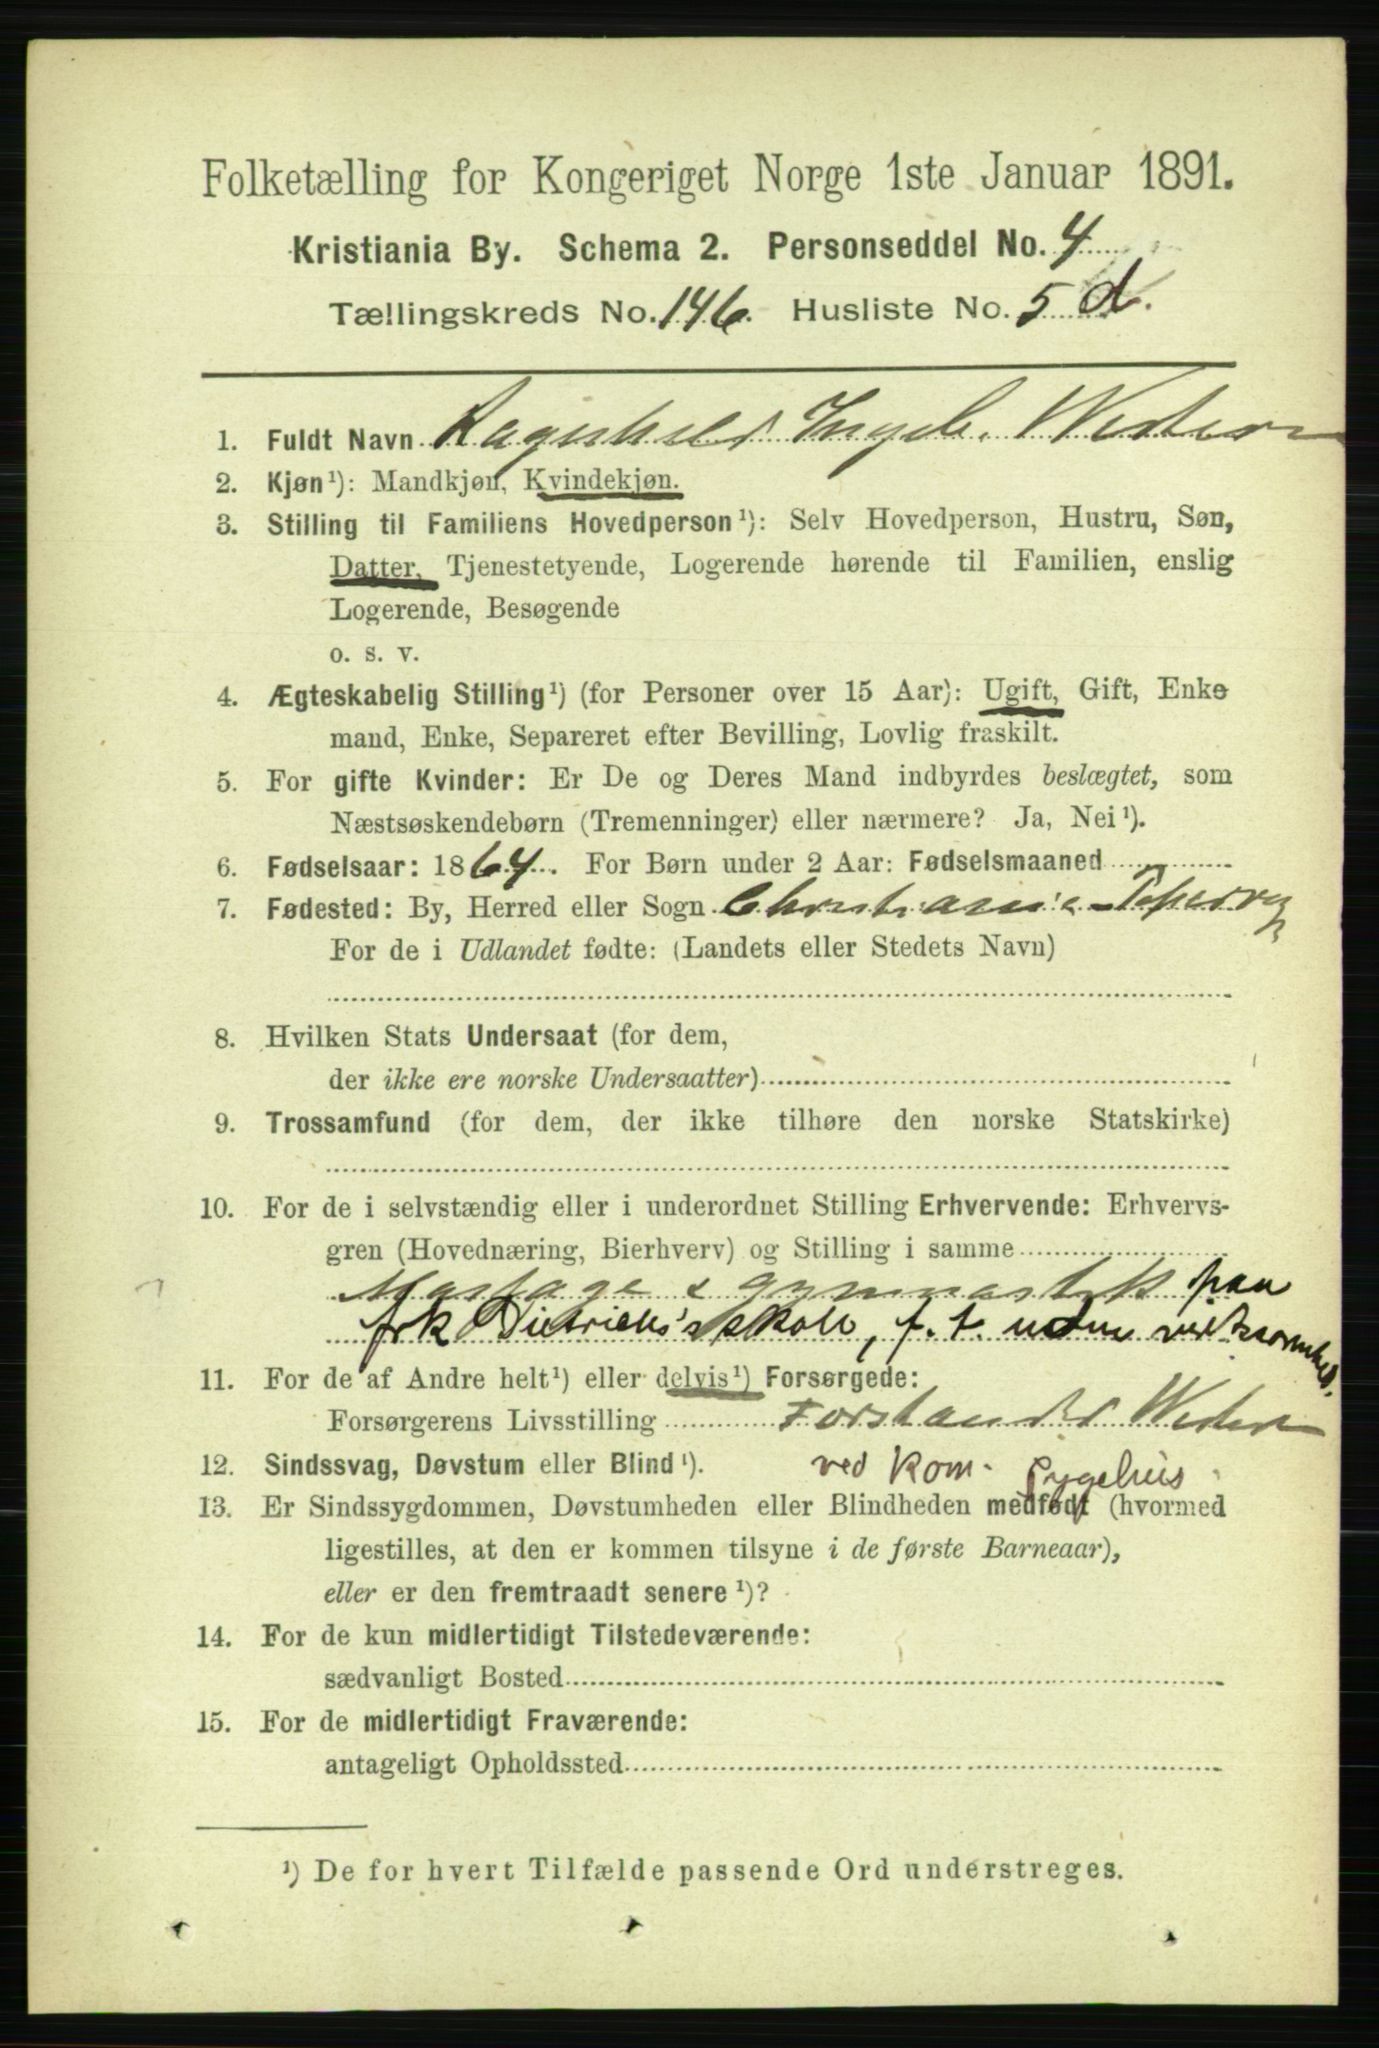 Folketælling for Kongeriget Norge 1ste Januar 1891.
Kristiania By. Schema 2. Personseddel No. 4
Tællingskreds No. 146. Husliste No. 5 d.
1. Fuldt Navn Ragnhild Ingeb. Western
2. Kjøn¹): Mandkjøn, Kvindekjøn.
3. Stilling til Familiens Hovedperson¹): Selv Hovedperson, Hustru, Søn,
Datter, Tjenestetyende, Logerende hørende til Familien, enslig
Logerende, Besøgende
o. s. v.
4. Ægteskabelig Stilling¹) (for Personer over 15 Aar): Ugift, Gift, Enke
mand, Enke, Separeret efter Bevilling, Lovlig fraskilt.
5. For gifte Kvinder: Er De og Deres Mand indbyrdes beslægtet, som
Næstsøskendebørn (Tremenninger) eller nærmere? Ja, Nei¹).
6. Fødselsaar: 1864. For Børn under 2 Aar: Fødselsmaaned
7. Fødested: By, Herred eller Sogn Christiania
For de i Udlandet fødte: (Landets eller Stedets Navn)
8. Hvilken Stats Undersaat (for dem,
der ikke ere norske Undersaatter)
9. Trossamfund (for dem, der ikke tilhøre den norske Statskirke)
10. For de i selvstændig eller i underordnet Stilling Erhvervende: Erhvervs-
gren (Hovednæring, Bierhverv) og Stilling i samme
Massage & gymnastik paa
frk Dietrichs's skole, f. t. uden virksomhed.
11. For de af Andre helt¹) eller delvis¹) Forsørgede:
Forsørgerens Livsstilling Forstander Western
12. Sindssvag, Døvstum eller Blind¹). ved Kom. Sygehus
13. Er Sindssygdommen, Døvstumheden eller Blindheden medfødt (hvormed
ligestilles, at den er kommen tilsyne i de første Barneaar),
eller er den fremtraadt senere¹)?
14. For de kun midlertidigt Tilstedeværende:
sædvanligt Bosted
15. For de midlertidigt Fraværende:
antageligt Opholdssted
¹) De for hvert Tilfælde passende Ord understreges.